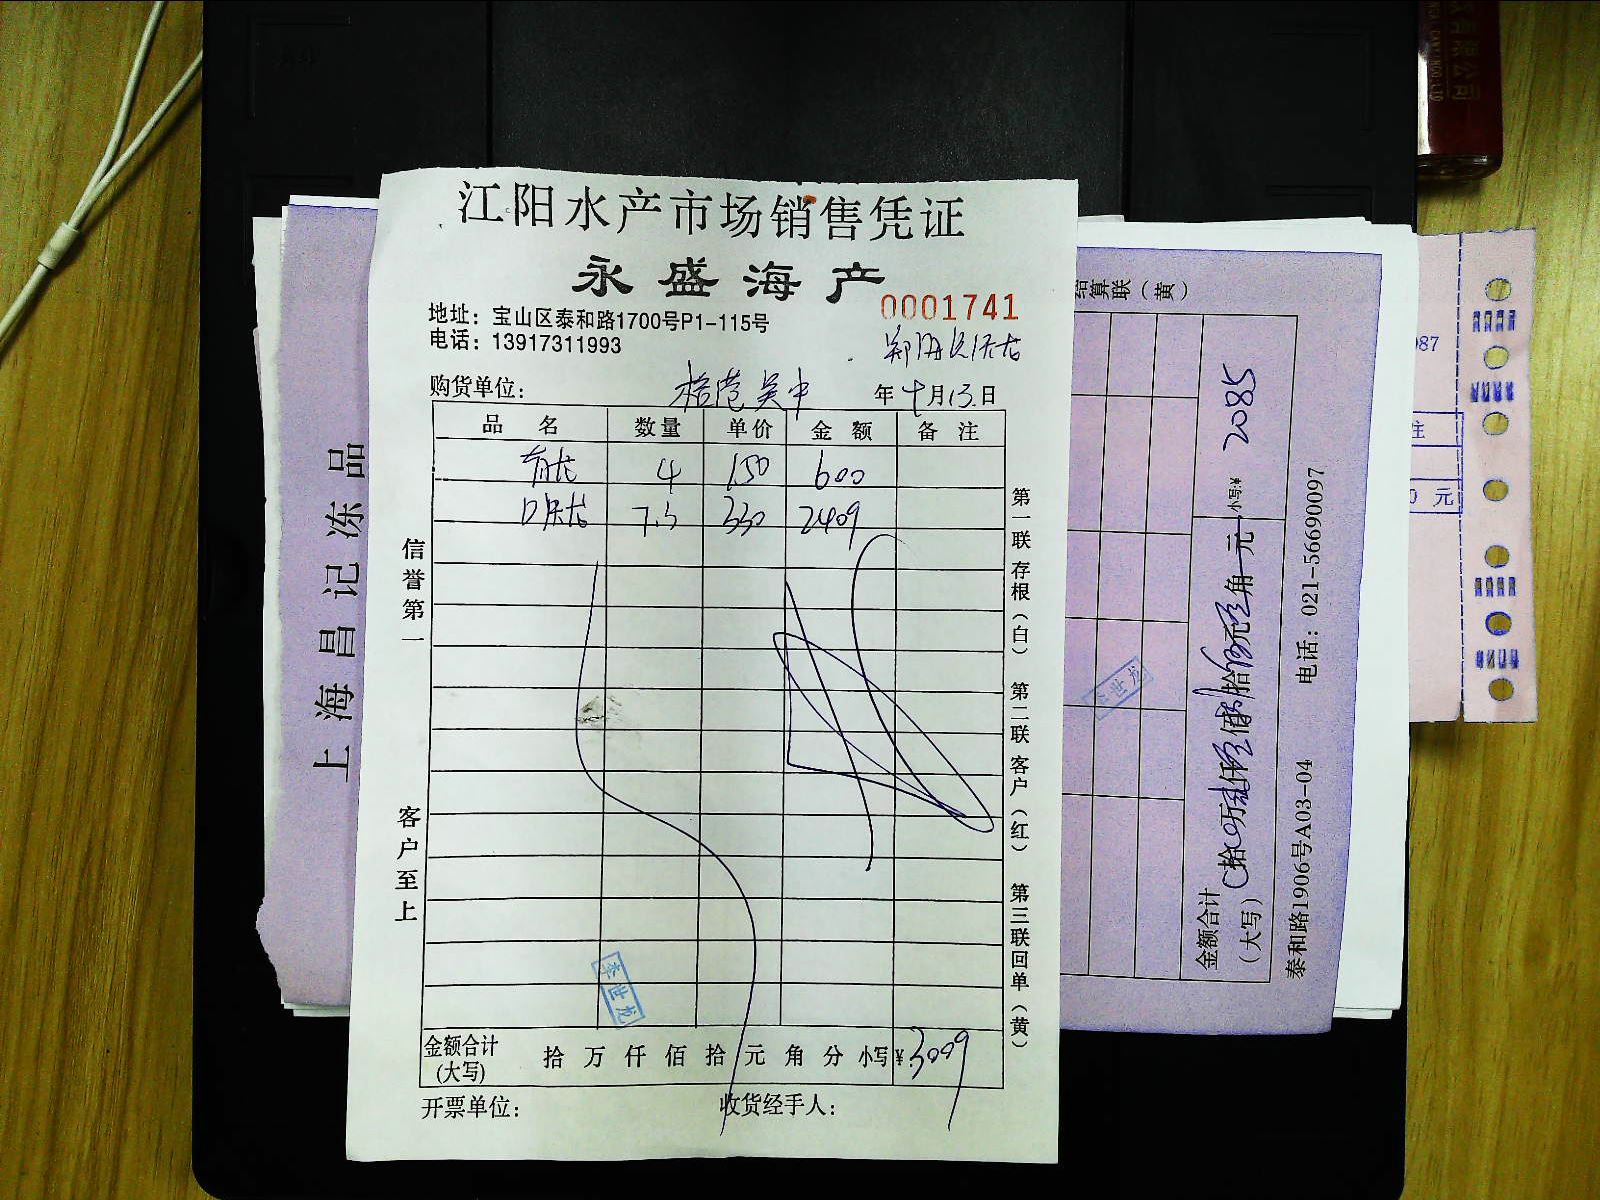 江阳水产市场销售凭证
永盛海产
0001741
地址：宝山区泰和路1700号P1-115号
电话：13917311993
购货单位： 吴中 年 月13日
品名 数量 单价 金额 备注
青龙 4 150 600
7.3 330 2409
信誉第一
客户至上
第一联存根（白） 第二联客户（红） 第三联回单（黄）
李世龙
金额合计（大写） 拾万仟佰拾元角分 小写¥3009
开票单位： 收货经手人：
上海昌记冻品
结算联（黄）
金额合计（大写） 拾万仟佰拾元角 元 小写:¥ 2085
泰和路1906号A03-04 电话：021-56690097
李世龙
987
注
0元
公司